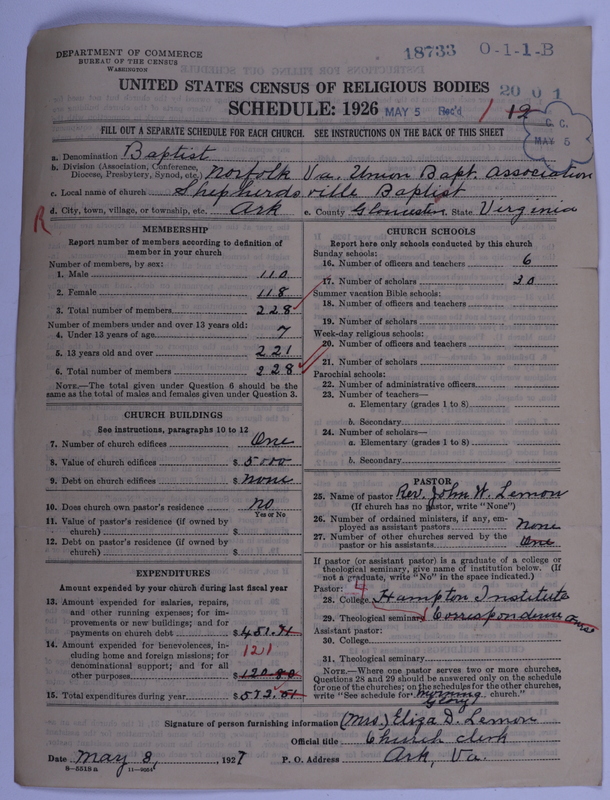 18733 O-1-1-B
DEPARTMENT OF COMMERCE
BUREAU OF THE CENSUS
WASHINGTON
UNITED STATES CENSUS OF RELIGIOUS BODIES
20 0 1
SCHEDULE: 1926 MAY 5 Rec'd 1 12
C. C.
MAY 5
FILL OUT A SEPARATE SCHEDULE FOR EACH CHURCH. SEE INSTRUCTIONS ON THE BACK OF THIS SHEET
a. Denomination Baptist
b. Division (Association, Conference, Diocese, Presbytery, Synod, etc.) Norfolk Va. Union Bapt. Association
c. Local name of church Shepherdsville Baptist
R d. City, town, village, or township, etc. Ark e. County Gloucester State Virginia
MEMBERSHIP
Report number of members according to definition of
member in your church
Number of members, by sex:
1. Male 110
2. Female 118
3. Total number of members 228
Number of members under and over 13 years old:
4. Under 13 years of age 7
5. 13 years old and over 221
6. Total number of members 228
NOTE.—The total given under Question 6 should be the
same as the total of males and females given under Question 3.
CHURCH BUILDINGS
See instructions, paragraphs 10 to 12
7. Number of church edifices One
8. Value of church edifices $ 5000
9. Debt on church edifices $ None
10. Does church own pastor's residence No
Yes or No
11. Value of pastor's residence (if owned by
church) $
12. Debt on pastor's residence (if owned by
church) $
EXPENDITURES
Amount expended by your church during last fiscal year
13. Amount expended for salaries, repairs,
and other running expenses; for im-
provements or new buildings; and for
payments on church debt $ 451.71
14. Amount expended for benevolences, in-
cluding home and foreign missions; for 121
denominational support; and for all
other purposes $ 120.80
15. Total expenditures during year $ 572.51
CHURCH SCHOOLS
Report here only schools conducted by this church
Sunday schools:
16. Number of officers and teachers 6
17. Number of scholars 30
Summer vacation Bible schools:
18. Number of officers and teachers
19. Number of scholars
Week-day religious schools:
20. Number of officers and teachers
21. Number of scholars
Parochial schools:
22. Number of administrative officers
23. Number of teachers—
a. Elementary (grades 1 to 8)
b. Secondary
24. Number of scholars—
a. Elementary (grades 1 to 8)
b. Secondary
PASTOR
25. Name of pastor Rev. John W. Lemon
(If church has no pastor, write "None")
26. Number of ordained ministers, if any, em-
ployed as assistant pastors None
27. Number of other churches served by the
pastor or his assistants One
If pastor (or assistant pastor) is a graduate of a college or
theological seminary, give name of institution below. (If
not a graduate, write "No" in the space indicated.)
Pastor: 4
28. College Hampton Institute
29. Theological seminary Correspondence
Assistant pastor:
30. College
31. Theological seminary
NOTE.—Where one pastor serves two or more churches,
Questions 28 and 29 should be answered only on the schedule
for one of the churches; on the schedules for the other churches,
write "See schedule for Morning Glory church."
Signature of person furnishing information (Mrs.) Eliza D. Lemon
Official title Church clerk
Date May 3, 1927 P. O. Address Ark, Va.
8—5518 a 11—9054